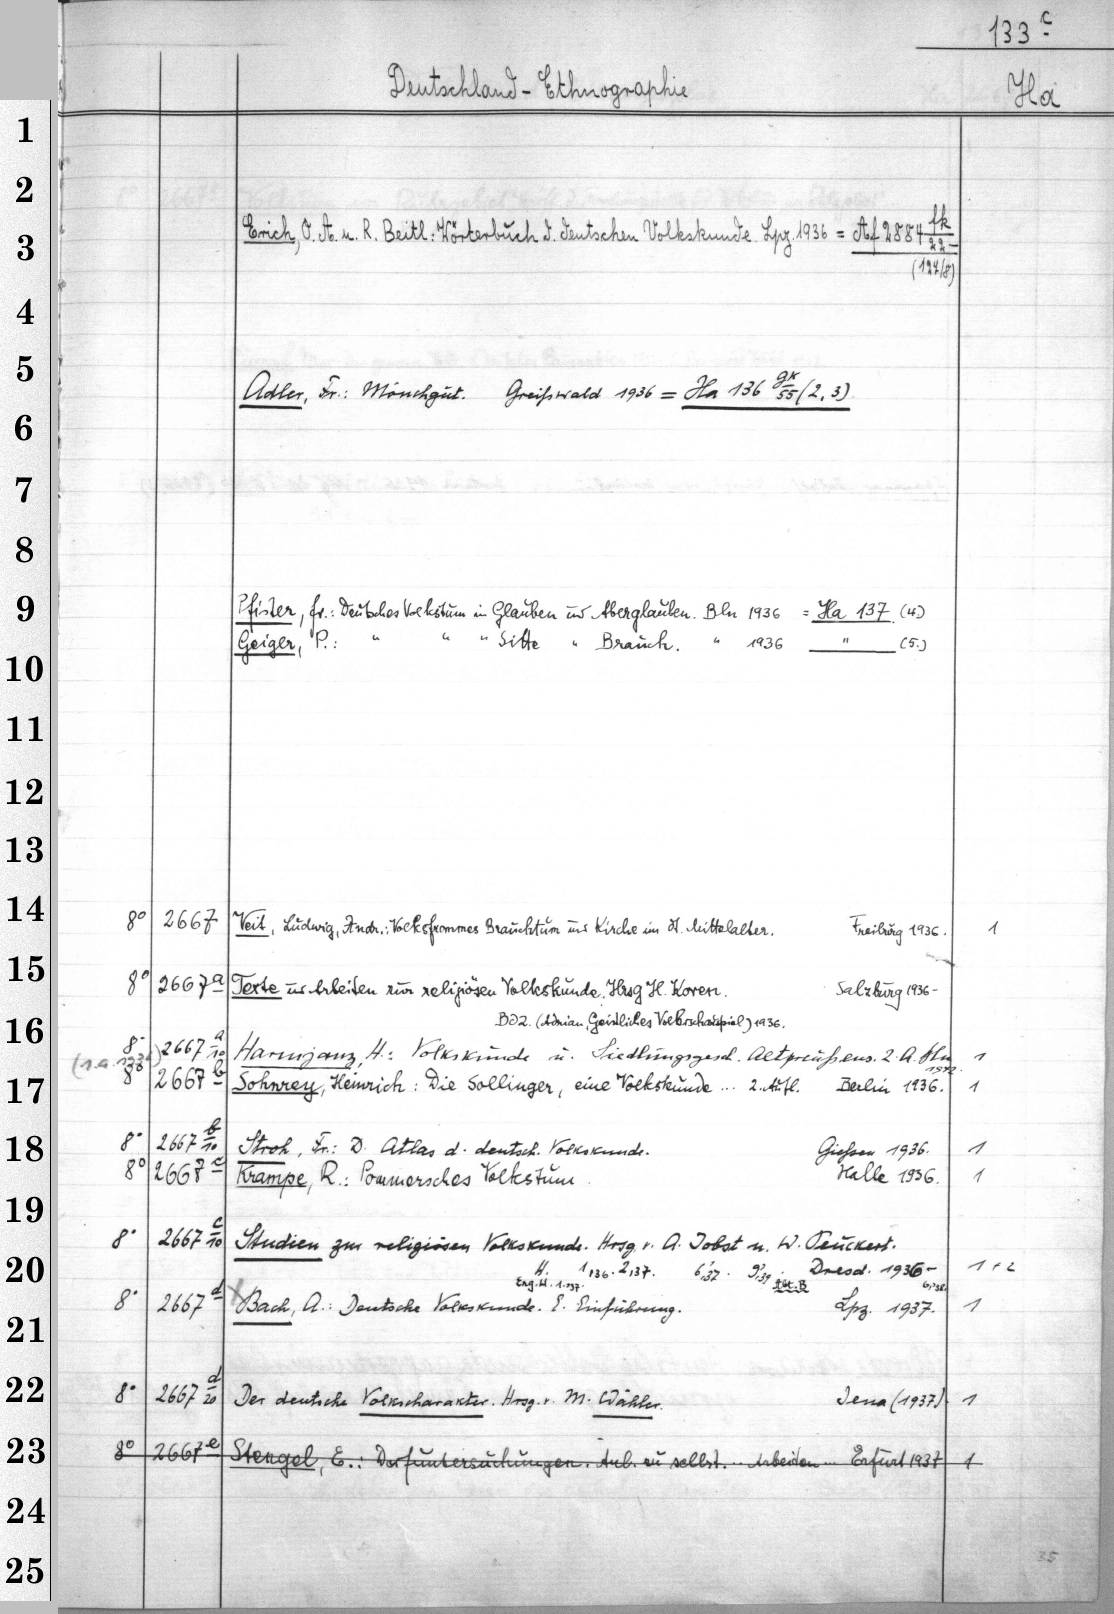 133 c
Deutschland - Ethnographie Ha
1
2
3 Erich, O. A. u. R. Beitl: Wörterbuch d. deutschen Volkskunde. Lpz. 1936 = Af 2884 fk/22-
(127/8)
4
5 Adler, Fr.: Mönchgut. Greifswald 1936 = Ha 136 gk/55 (2, 3)
6
7
8
9 Pfister, Fr.: Deutsches Volkstum in Glauben und Aberglauben. Bln 1936 = Ha 137 (4)
Geiger, P.: " " " Sitte " Brauch. " 1936 " (5.)
10
11
12
13
14 8° 2667 Veit, Ludwig, Andr.: Volksfrommes Brauchtum und Kirche im dt. Mittelalter. Freiburg 1936. 1
15 8° 2667 a Texte und Arbeiten zur religiösen Volkskunde. Hrsg H. Koren. Salzburg 1936-
Bd 2. (Adrian, Geistliches Volksschauspiel) 1936.
16 8° 2667 a/10 Harmjanz, H.: Volkskunde u. Siedlungsgesch. Altpreußens. 2. A. Bln 1942. 1
(1. A. 1936)
17 8° 2667 b Sohnrey, Heinrich: Die Sollinger, eine Volkskunde ... 2. Aufl. Berlin 1936. 1
18 8° 2667 b/10 Stroh, Fr.: D. Atlas d. deutsch. Volkskunde. Giessen 1936. 1
8° 2667 c Krampe, R.: Pommersches Volkstum. Halle 1936. 1
19
8° 2667 c/10 Studien zur religiösen Volkskunde. Hrsg. v. A. Jobst u. W. Peuckert.
20 H. 1,136. 2,137. 6,137. 9,139. Dresd. 1936- 1 + 2
Erg. H. 1.937. Abt. B
8° 2667 d Bach, A.: Deutsche Volkskunde. E. Einführung. Lpz. 1937. 1
21
22 8° 2667 d/20 Der deutsche Volkscharakter. Hrsg. v. M. Wähler. Jena (1937). 1
23 8° 2667 e Stengel, E.: Dorfuntersuchungen. Anl. zu selbst. ... Arbeiten ... Erfurt 1937 1
24
25
35